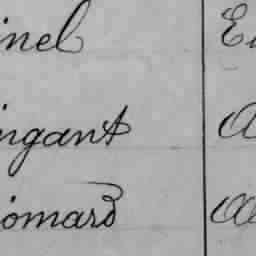 inel E
ingant A
iomard Æ